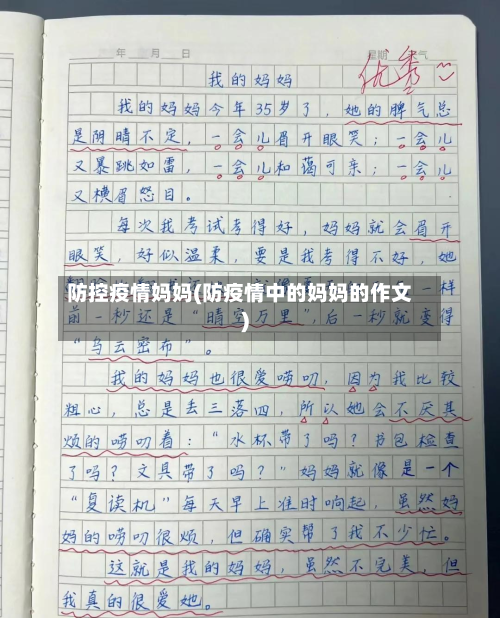 年 月 日 星期 天气
优秀
我的妈妈
我的妈妈今年35岁了，她的脾气总
是阴晴不定，一会儿眉开眼笑；一会儿
又暴跳如雷，一会儿和蔼可亲；一会儿
又横眉怒目。
每次我考试考得好，妈妈就会眉开
眼笑，好似温柔，要是我考得不好，她
防控疫情妈妈(防疫情中的妈妈的作文
)
一样
前一秒还是“晴空万里”，后一秒就变得
“乌云密布”。
我的妈妈也很爱唠叨，因为我比较
粗心，总是丢三落四，所以她会不厌其
烦的唠叨着：“水杯带了吗？书包检查
了吗？文具带了吗？”妈妈就像是一个
“复读机”每天早上准时响起，虽然妈
妈的唠叨很烦，但确实帮了我不少忙。
这就是我的妈妈，虽然不完美，但
我真的很爱她。